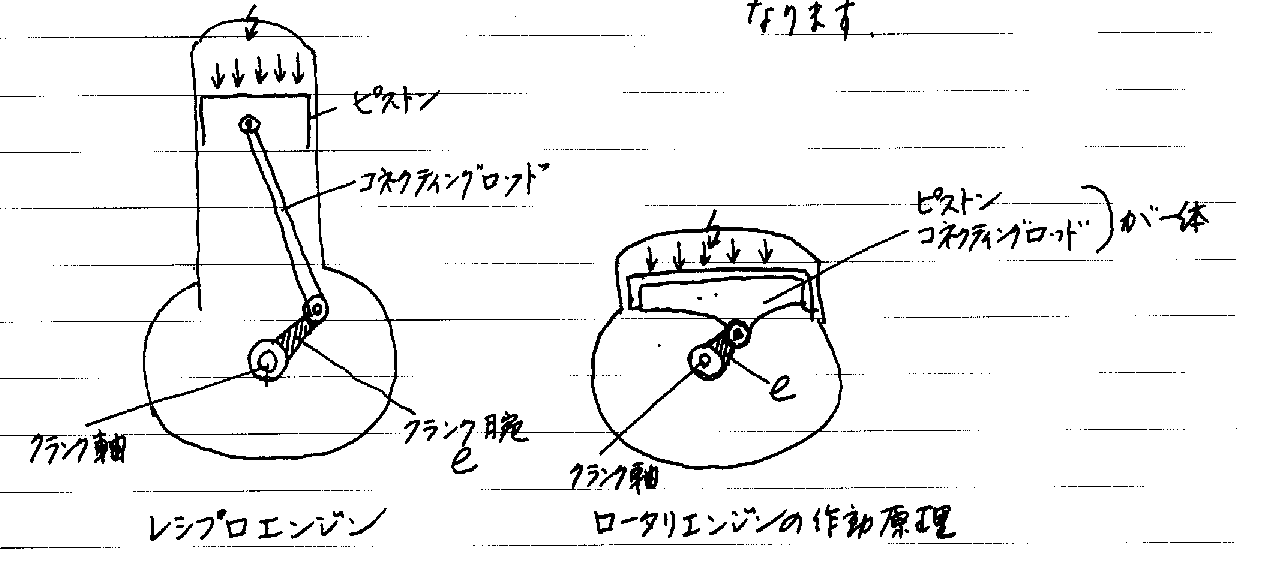 なります.
ピストン
コネクティングロッド
クランク軸
クランク腕
e
レシプロエンジン
ピストン
コネクティングロッド
が一体
e
クランク軸
ロータリエンジンの作動原理